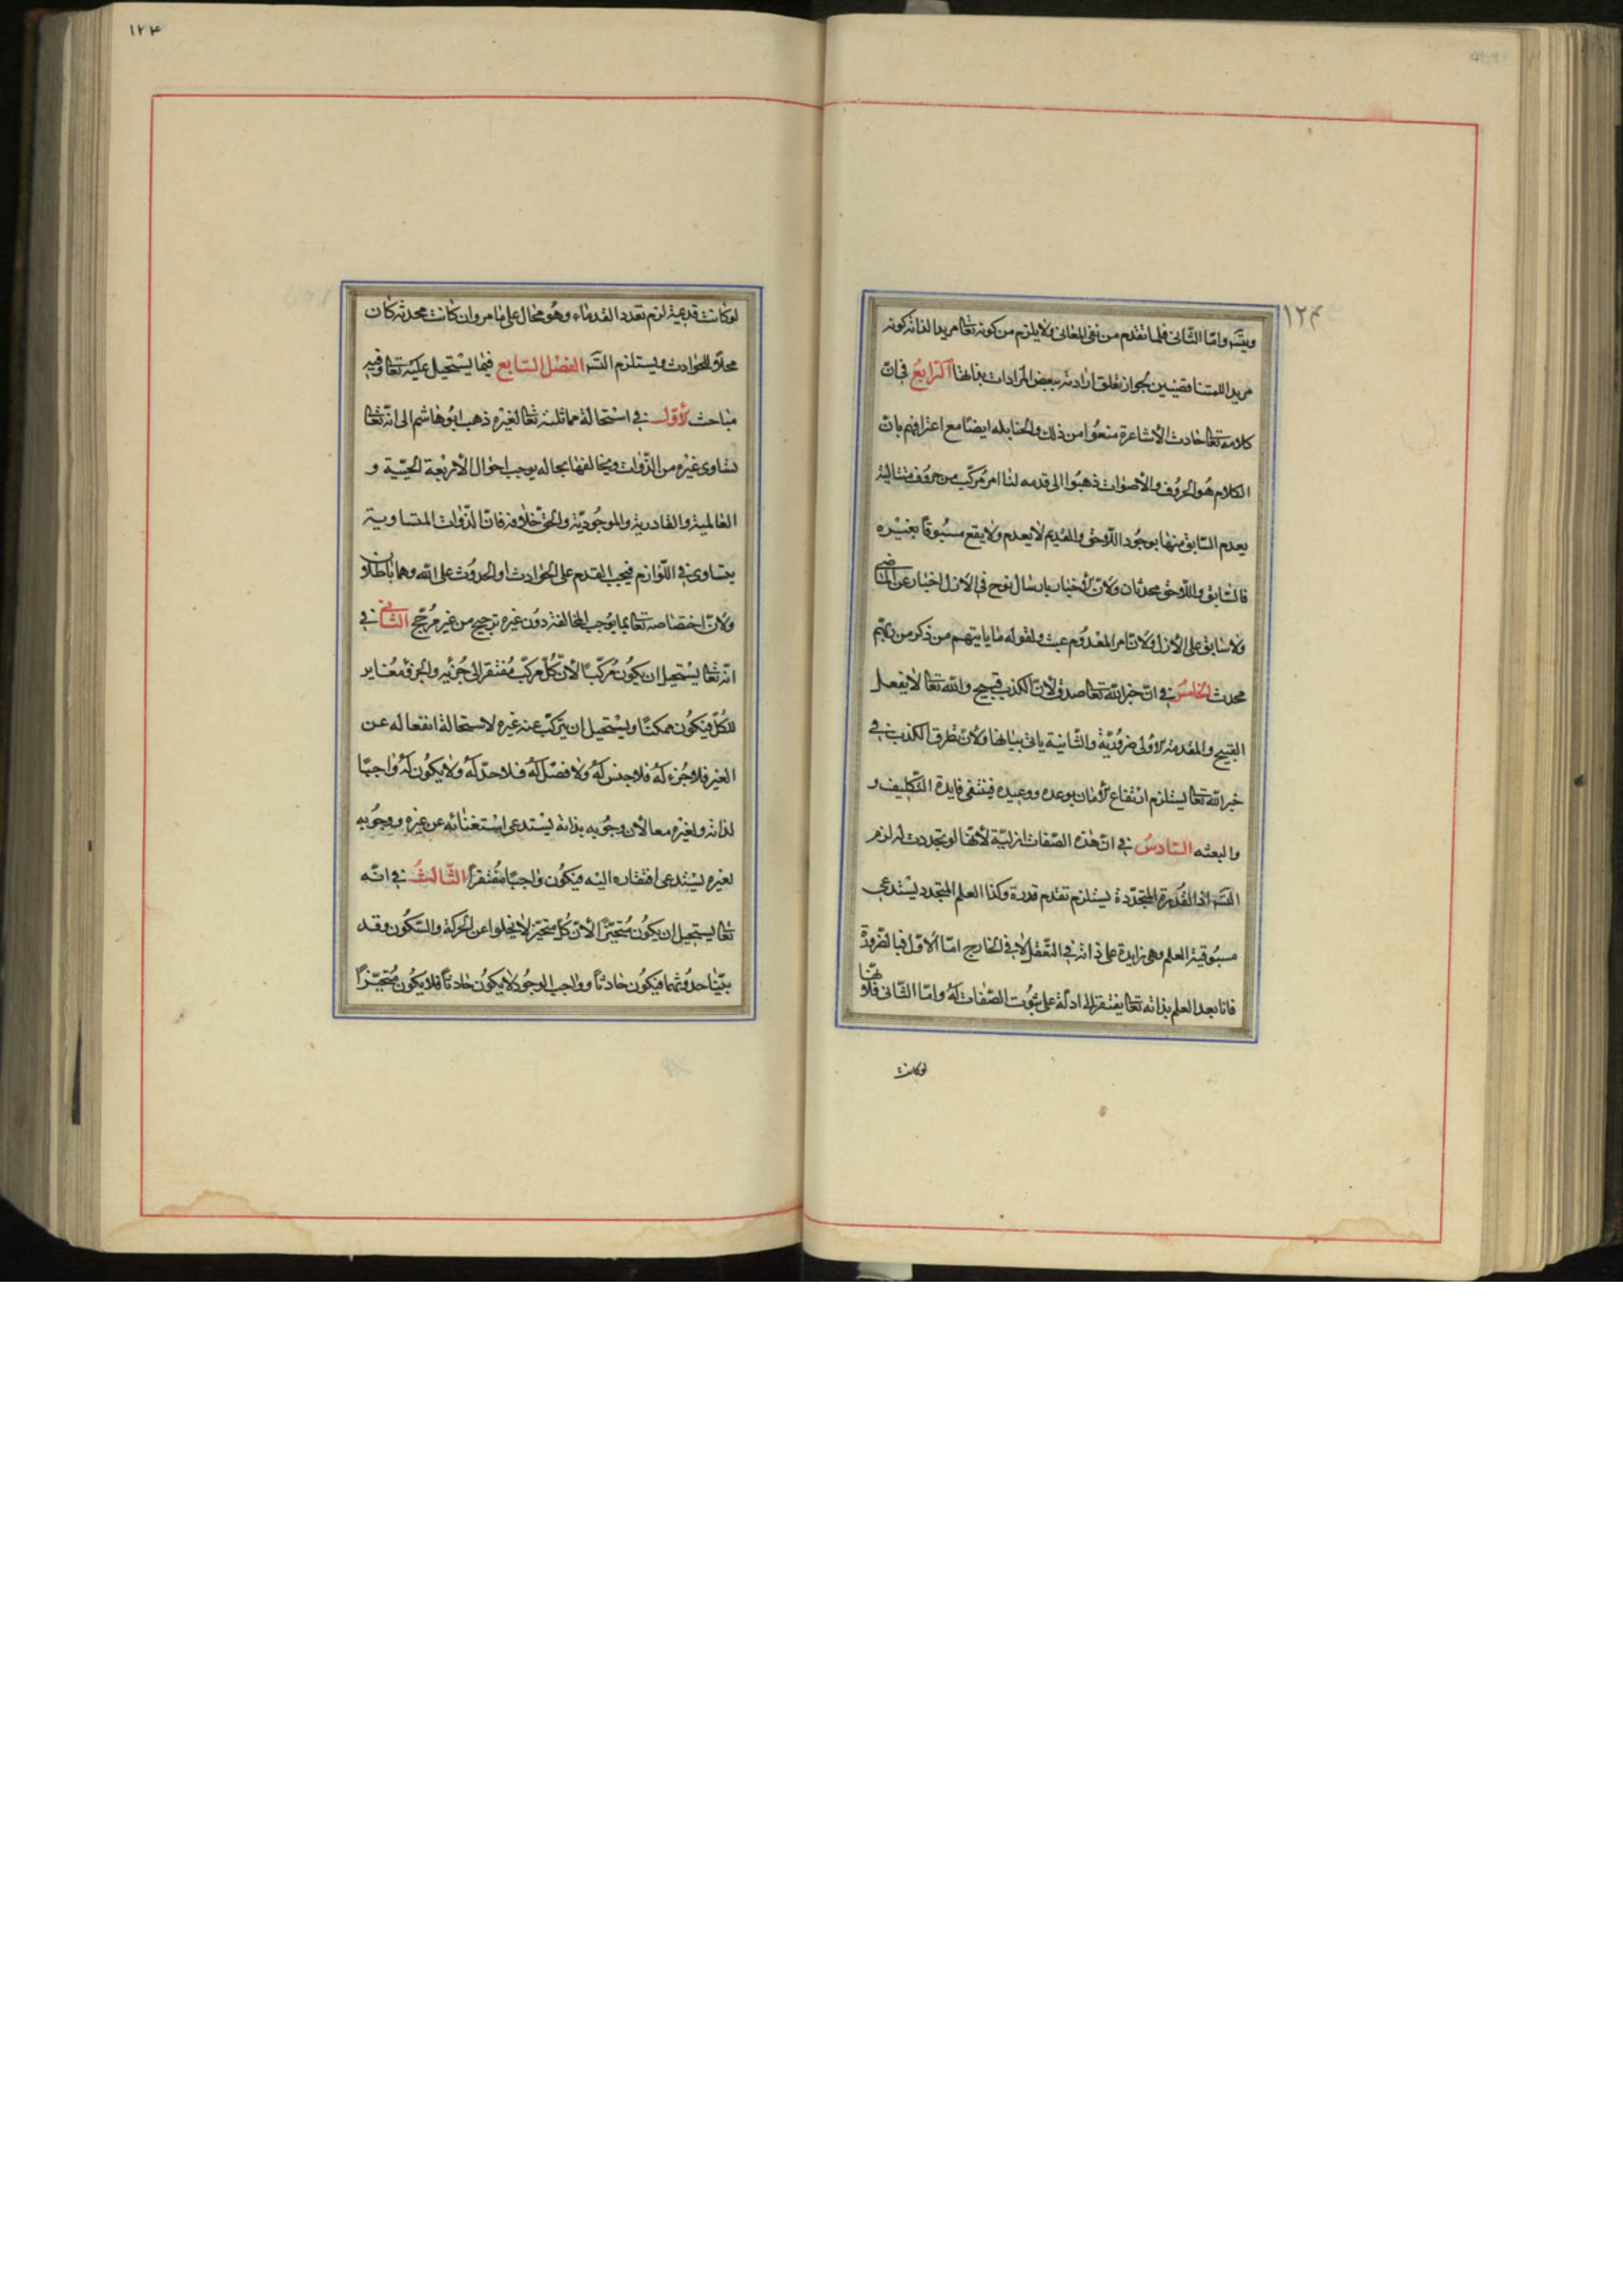 ١٢٤
ويتسه واما الثانى فلما تقدم من نفى المعانى ولا يلزم من كونه تعا مريدا لذاته كونه
مريدا للمتناقضين لجواز تعلق ارادته ببعض المرادات بذاتها الرابع فى ان
كلامه تعا حادث الأشاعرة منعوا من ذلك والحنابله ايضا مع اعترافهم بان
الكلام هو الحروف والأصوات ذهبوا الى قدمه لنا امر مركب من حروف متتالية
يعدم السابق منها بوجود اللاحق والقديم لا يعدم ولا يقع مسبوقا بغيره
فالسابق واللاحق محدثان ولان الأخبار بارسال نوح فى الازل اخبار عن الماضى
ولا سابق على الازل ولان امر المعدوم عبث ولقوله ما ياتيهم من ذكر من ربهم
محدث الخامس فى ان خبر الله تعا صدق لان الكذب قبيح والله تعا لا يفعل
القبيح والمقدمة الأولى ضرورية والثانية ياتى بيانها ولان تطرق الكذب فى
خبر الله تعا يستلزم ارتفاع الأمان بوعده ووعيده فينتفى فايدة التكليف و
والبعثه السادس فى ان هذه الصفات ازلية لأنها لو تجددت له لزم
التسه اذ القدرة المتجددة يستلزم تقدم قدرة وكذا العلم المتجدد يستدعى
مسبوقية العلم وهى زايدة على ذاته فى التعقل لا فى الخارج اما الاول فبالضرورة
فانا بعد العلم بذاته تعا يفتقر الى ادلة على ثبوت الصفات له واما الثانى فلانها
لو كانت
١٢٤
لو كانت قديمة لزم تعدد القدماء وهو محال على ما مر وان كانت محدثه كان
محلا للحوادث ويستلزم التسه الفصل السابع فيما يستحيل عليه تعا وفيه
مباحث الأول فى استحالة مماثلته تعا لغيره ذهب ابو هاشم الى انه تعا
يساوى غيره من الذوات ويخالفها بحاله يوجب احوال الأربعة الحيية و
العالمية والقادرية والموجودية والحق خلافه فان الذوات المتساوية
يتساوى فى اللوازم فيجب القدم على الحوادث او الحدوث على الله وهما باطلان
ولان اختصاصه تعا بما يوجب المخالفة دون غيره ترجيح من غير مرجح الثانى فى
انه تعا يستحيل ان يكون مركبا لأن كل مركب مفتقر الى جزئه والجزء مغاير
للكل فيكون ممكنا ويستحيل ان يتركب عنه غيره لاستحالة انفعاله عن
الغير فلا جزء له فلا جنس له ولا فصل له فلا حد له ولا يكون له واجبا
لذاته ولغيره معا لأن وجوبه بذاته يستدعى استغنائه عن غيره ووجوبه
لغيره يستدعى افتقاره اليه فيكون واجبا مفتقرا الثالث فى انه
تعا يستحيل ان يكون متحيزا لأن كل متحيز لا يخلوا عن الحركة والسكون وقد
بينا حدوثهما فيكون حادثا وواجب الوجود لا يكون حادثا فلا يكون متحيزا